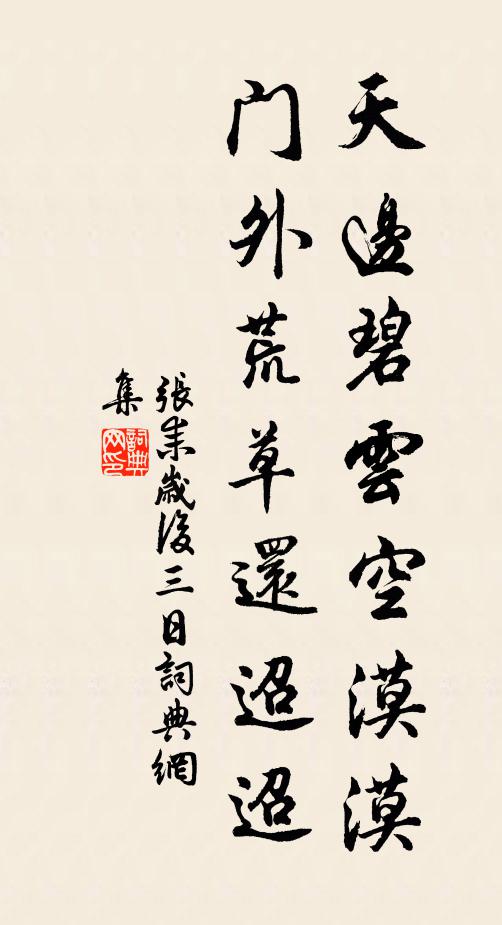 天邊碧雲空漠漠
門外荒草還迢迢
張耒歲後三日詞典網
集
詞典
网印